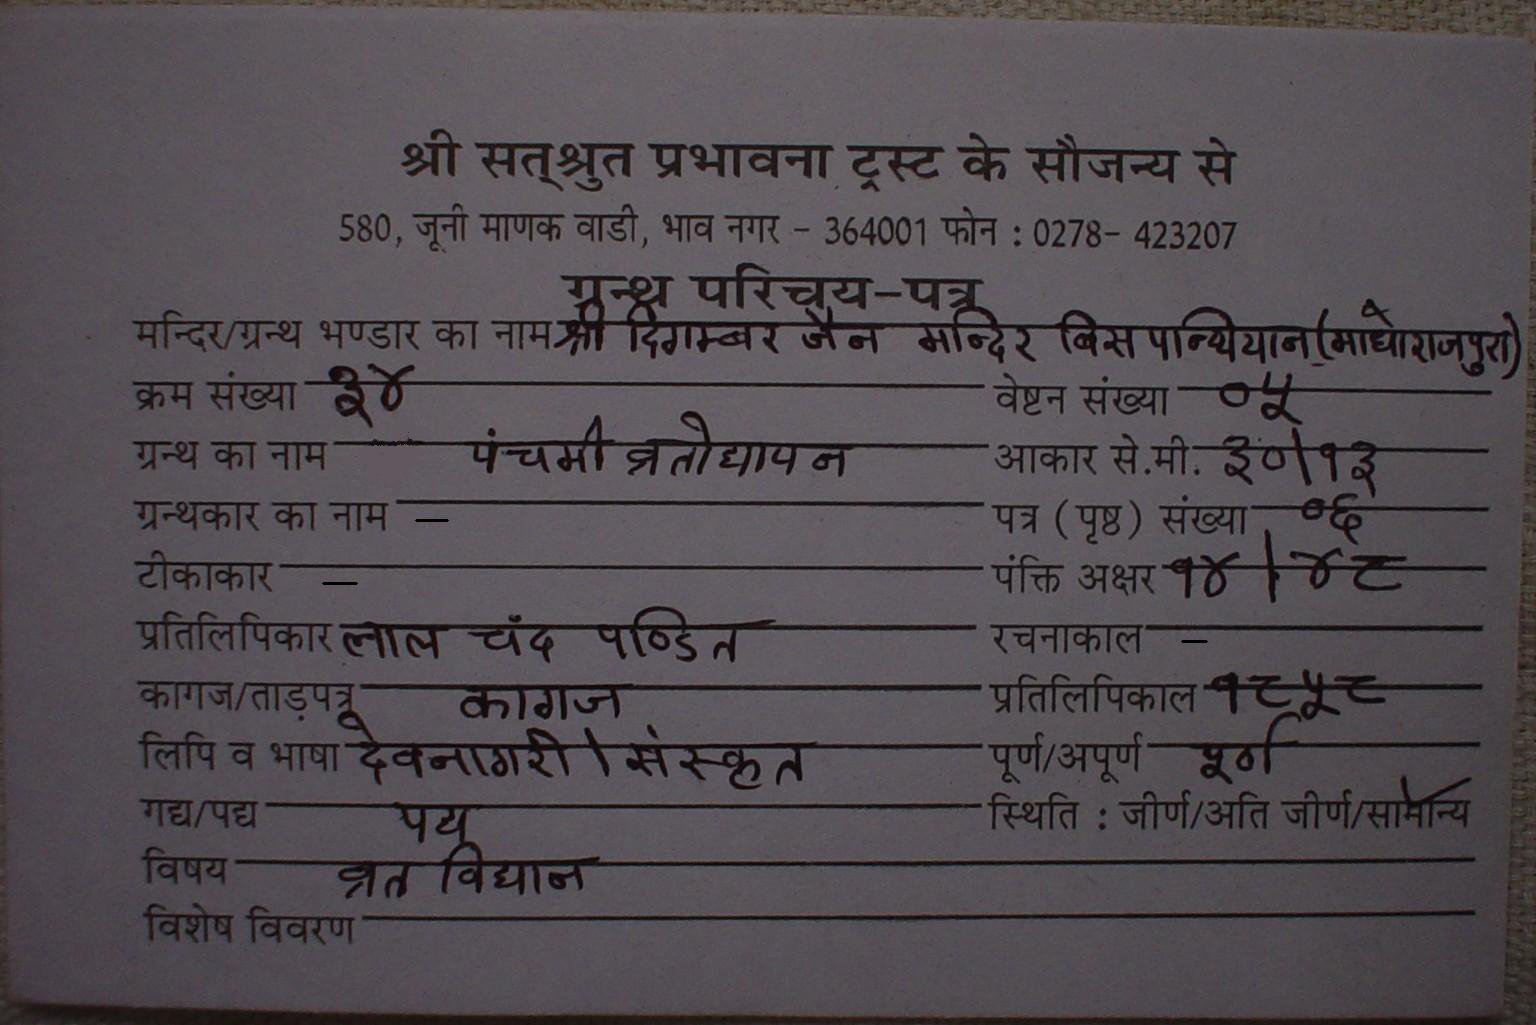 श्री सत्श्रुत प्रभावना ट्रस्ट के सौजन्य से
580, जूनी माणक वाडी, भाव नगर - 364001 फोन : 0278- 423207
ग्रन्थ परिचय-पत्र
मन्दिर/ग्रन्थ भण्डार का नाम श्री दिगम्बर जैन मन्दिर बिसपान्थियान (माधोराजपुरा)
क्रम संख्या ३४ वेष्टन संख्या ०५
ग्रन्थ का नाम पंचमी व्रतोद्यापन आकार से.मी. ३०|१३
ग्रन्थकार का नाम — पत्र (पृष्ठ) संख्या ०६
टीकाकार — पंक्ति अक्षर १४ | ४८
प्रतिलिपिकार लाल चंद पण्डित रचनाकाल —
कागज/ताड़पत्र कागज प्रतिलिपिकाल १८५८
लिपि व भाषा देवनागरी । संस्कृत पूर्ण/अपूर्ण पूर्ण
गद्य/पद्य पद्य स्थिति : जीर्ण/अति जीर्ण/सामान्य
विषय व्रत विधान
विशेष विवरण